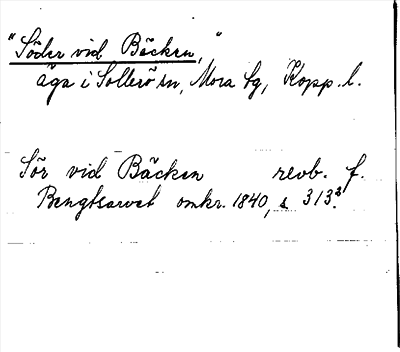 "Söder vid Bäcken,"
äga i Sollerö sn, Mora tg, Kopp. l.
Sör vid Bäcken revb. f.
Bengtsarvet omkr. 1840, s. 313³.